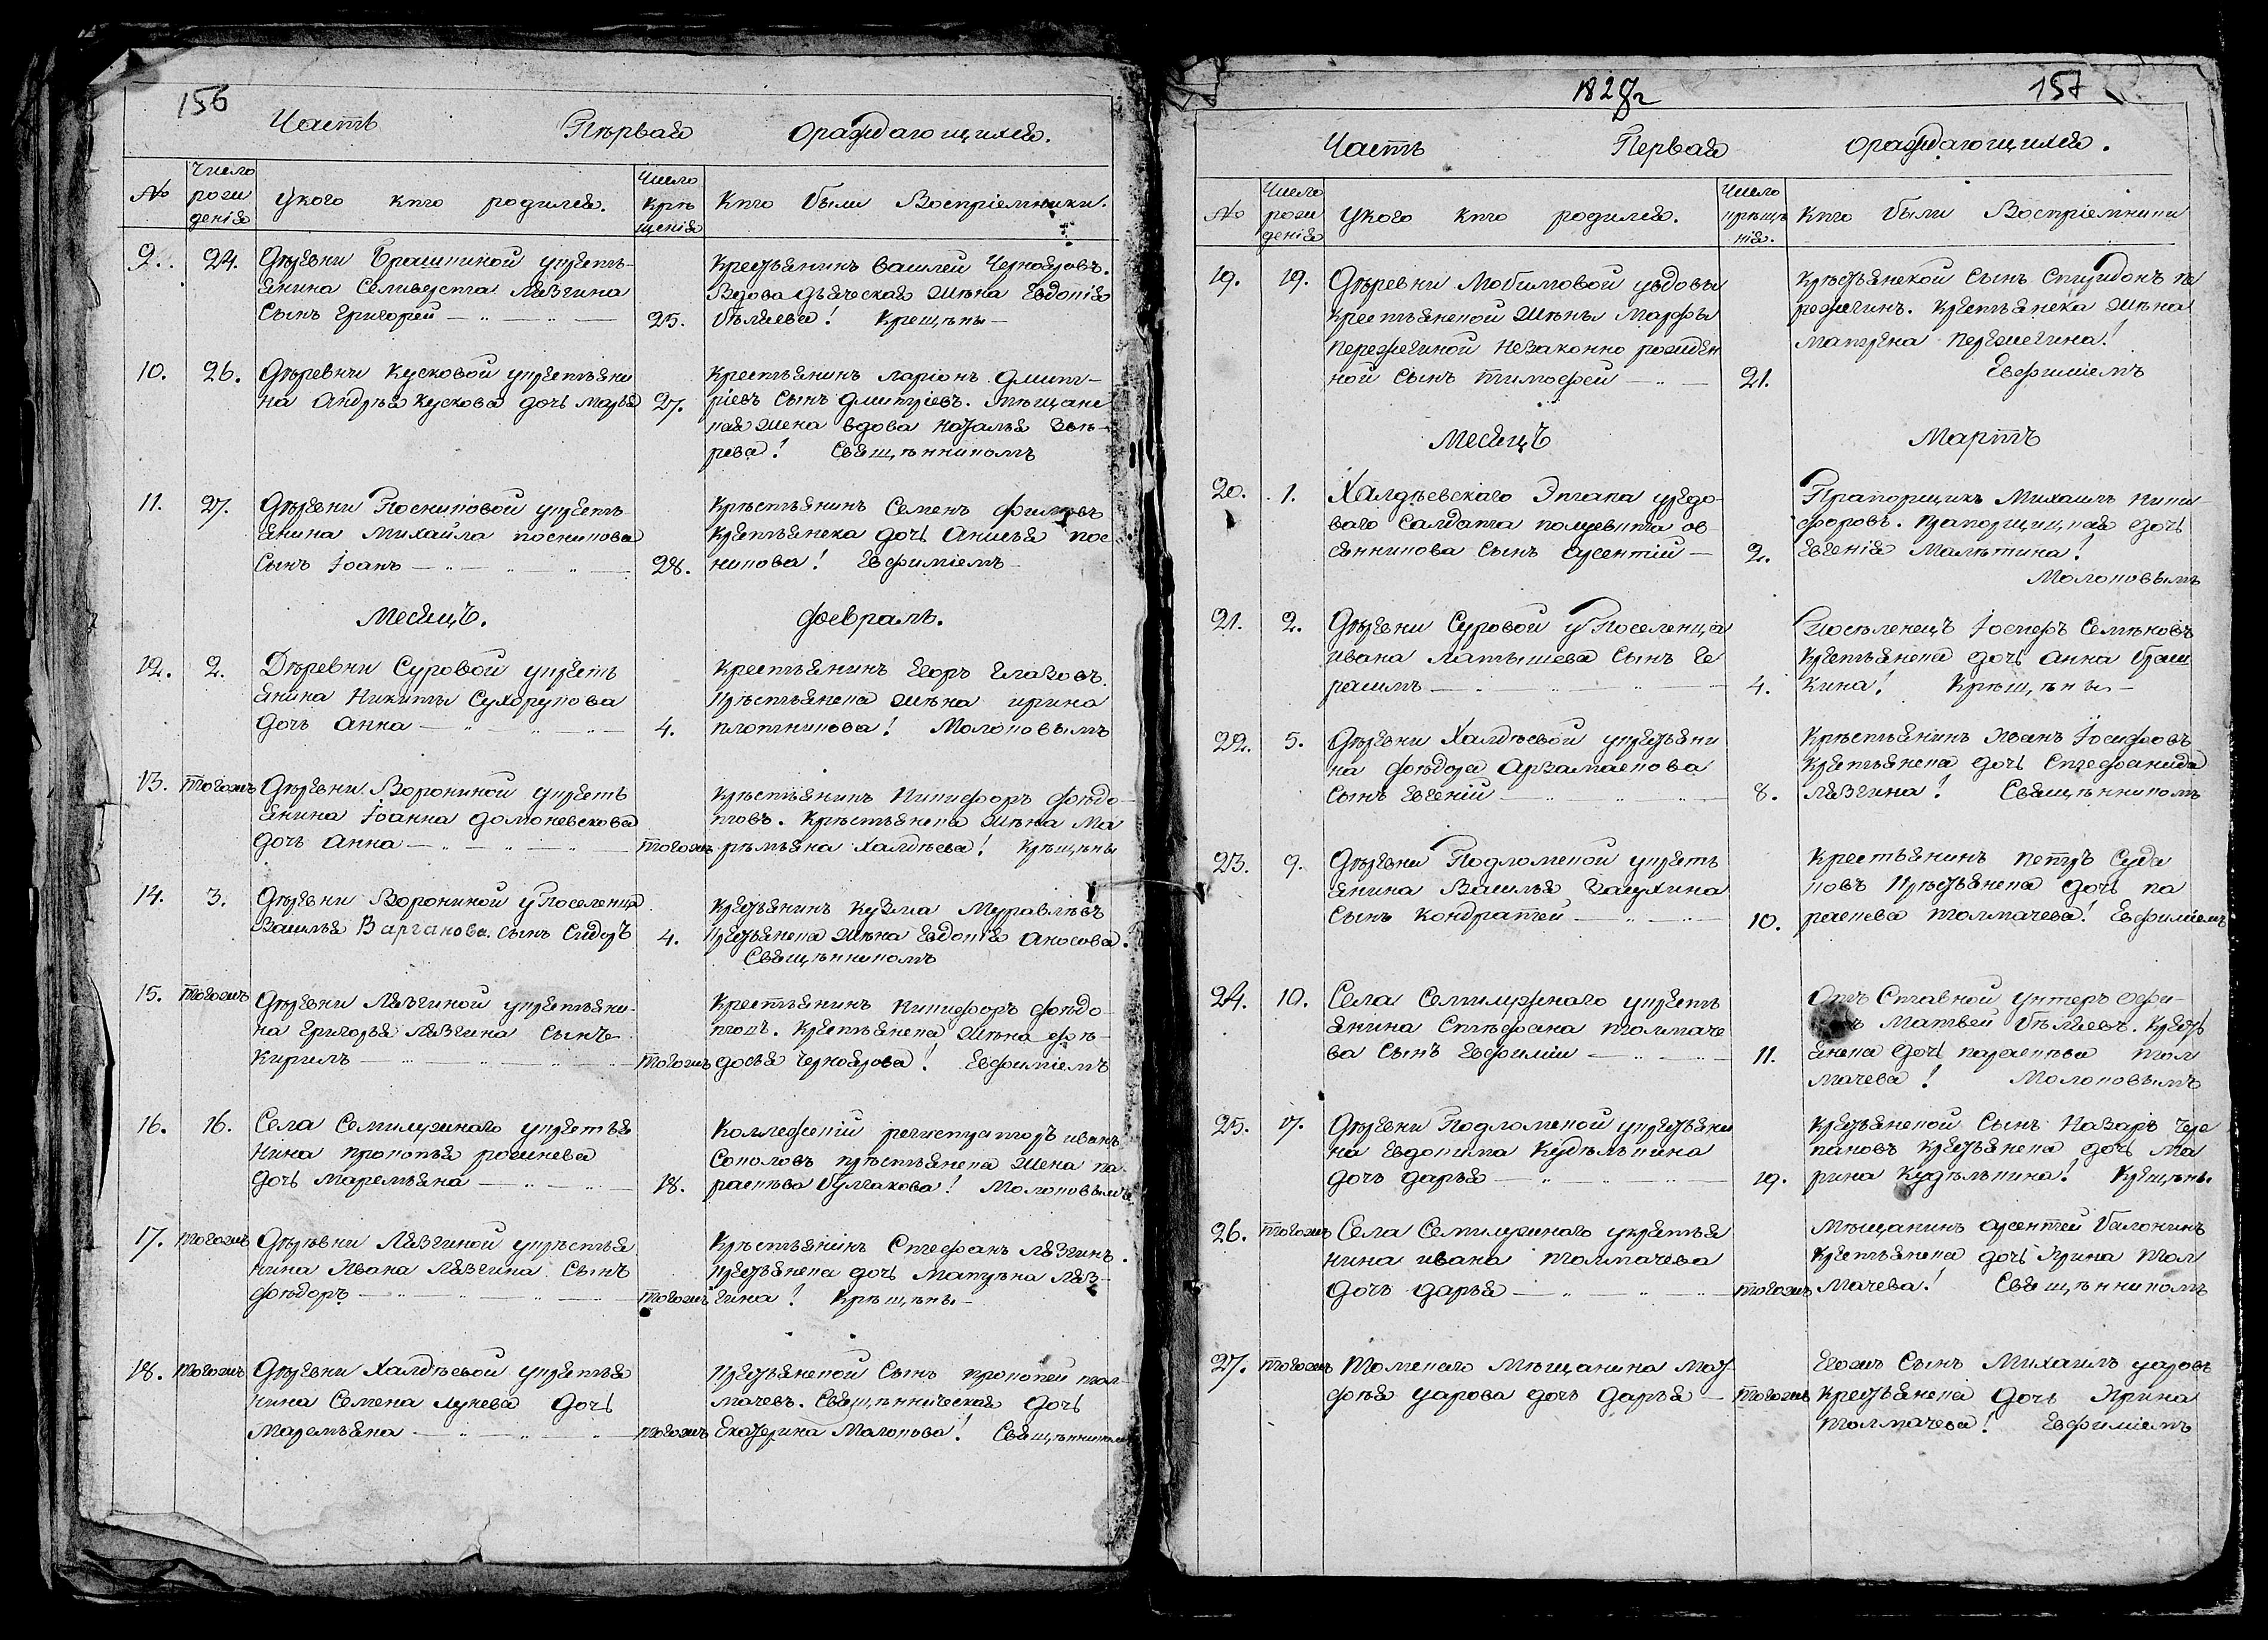 156
Часть Пѣрвая ораждающихся.
№
Число рожденія
Укого кто родился.
Число крѣщенія
Кто были Воспріемники.
9. 24. Дѣревни Брашкиной укрестьянина Селиверста Лязгина
Сынъ Григорей 25.
Крестьянинъ Василей Чернояровъ.
Вдова дьяческая жѣна Евдокія
Бѣляева! Крещѣны
10. 26. Дѣревни Кусковой укрестьяни
на Андрѣя Кускова дочь Марья 27.
Крестьянинъ Ларіонъ Дмит-
ріевъ сынъ Дмитріевъ. Мѣщанс
кая жена вдова Наталья Звѣ-
рева! Свящѣнникомъ
11. 27. Дѣревни Поскиповой укресть
янина Михайла Поскипова
Сынъ Іоанъ 28.
Крѣстьянинъ Семенъ
Крестьянска дочь Анисья Пос
кипова! Евфиміемъ
Месяцъ. февраль.
12. 2. Дѣревни Суровой укресть
янина Никиты Сухорукова
дочь Анна 4.
Крестьянинъ Егоръ Глазовъ.
Крѣстьянска жѣна Ирина
Плотникова! Молоковымъ
13. тогожъ Дѣревни Ворониной укресть
янина Іоанна Домоневскова
дочь Анна тогожъ
Крѣстьянинъ Никифоръ Фѣдо-
товъ. Крѣстьянска жѣна Ма
рѣмьяна Халдѣева! Крѣщѣны
14. 3. Дѣревни Ворониной у Поселенца
Василья Варганова. Сынъ Сидоръ 4.
Крестьянинъ Кузма Муравлѣвъ
Крестьянска жѣна Евдокія Аносова.
Свящѣнникомъ
15. тогожъ Дѣревни Лязгиной укрестьяни-
на Григорья Лязгина Сынъ
Кирилъ тогожъ
Крестьянинъ Никифоръ Фѣдо-
товъ. Крестьянска жѣна Фѣ-
досья Черноярова! Евфиміемъ
16. 16. Села Семилужнаго укрестья
нина Прокопья Рошнева
дочь Маремьяна 18.
Коллежскій регистраторъ Иванъ
Соколовъ Крѣстьянска жена Па
расковa Булгакова! Молоковымъ
17. тогожъ Дѣрѣвни Лязгиной укрѣстья
нина Ивана Лязгина Сынъ
Фѣдоръ тогожъ
Крѣстьянинъ Стефанъ Лязгинъ.
Крестьянска дочь Матрѣна Ляз-
гина! Крѣщѣны
18. тогожъ Дѣревни Халдѣевой укрестья
нина Семена Лунева дочь
Маремьяна тогожъ
Крестьянской Сынъ Прокопей Тол-
мачевъ. Свящѣнническая дочь
Екатерина Малопова! Свящѣнникомъ
1828г
157
Часть Первая ораждающихся.
№
Число рожденія
Укого кто родился.
Число крѣщенія.
Кто были Воспріемники
19. 19. Дѣревни Лобимовой увдовы
Крестьянской жѣны Марфы
Пережегиной незаконно рожден
ной Сынъ Тимофей 21.
Крѣстьянской Сынъ Спиридонъ Пе
режегинъ. Крестьянска жѣна
Матрена Пережегина!
Евфиміемъ
Месяцъ Мартъ
20. 1. Халдѣевскаго Этапа уредо-
ваго Салдата Полуевкта Ов
сянникова Сынъ Арсентій 2.
Прапорщикъ Михаилъ Ники
форовъ. Прапорщицкая дочь
Евгенія Малѣтина!
Молоковымъ
21. 2. Дѣревни Суровой у Поселенца
Ивана Латышева Сынъ Ге
расимъ 4.
Посѣленецъ Іосифъ Семѣновъ
Крестьянска дочь Анна Браш
кина! Крѣщѣны
22. 5. Дѣревни Халдѣевой укрестьяни
на Фѣдора Арзамаскова
Сынъ Евгеній 8.
Крѣстьянинъ Иванъ Іосифовъ
Крестьянска дочь Стефанида
Лязгина! Свящѣнникомъ
23. 9. Дѣревни Подломской укресть
янина Василья Галухина
Сынъ Кондратей 10.
Крестьянинъ Петръ Суда
ковъ Крѣстьянска дочь Па
расковa Толмачева! Евфиміемъ
24. 10. Села Семилужнаго укресть
янина Стѣфана Толмаче
ва Сынъ Евфимій 11.
Отъ Ставной унтеръ офи-
Матвей Бѣляевъ. Кресть
янска дочь Парасковa Тол
мачева! Молоковымъ
25. 17. Дѣревни Подломской укрестьяни
на Евдокима Кудѣлькина
дочь Дарья 19.
Крестьянской Сынъ Назаръ Чере
пановъ Крестьянска дочь Ма
рина Кудѣлькина! Крещѣны
26. тогожъ Села Семилужнаго укрестья
нина Ивана Толмачева
дочь Дарья тогожъ
Мѣщанинъ Арсентей Балонинъ
Крестьянска дочь Ирина Тол
мачева! Свящѣнникомъ
27. тогожъ Томскаго Мѣщанина Мат
фѣя Уарова дочь Дарья тогожъ
Егожъ Сынъ Михаилъ Уаровъ
Крестьянска дочь Ирина
Толмачева! Евфиміемъ